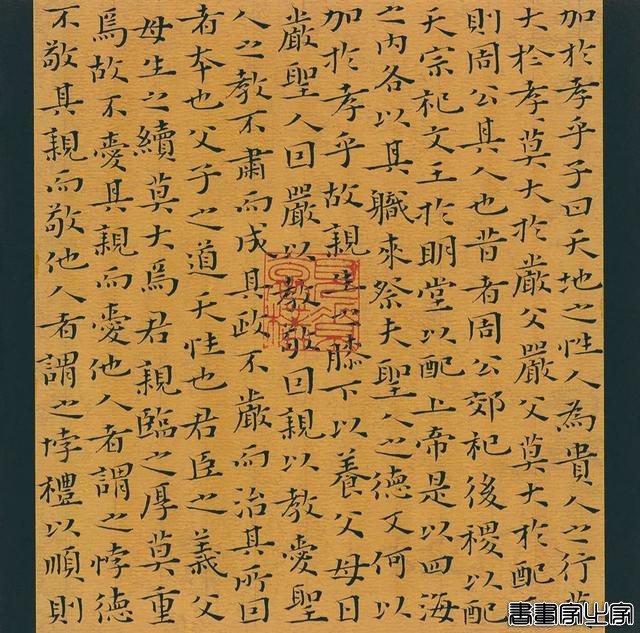 加於孝乎子曰天地之性人為貴人之行莫
大於孝莫大於嚴父嚴父莫大於配天
則周公其人也昔者周公郊祀後稷以配
天宗祀文王於明堂以配上帝是以四海
之內各以其職來祭夫聖人之德又何以
加於孝乎故親生之膝下以養父母日
嚴聖人因嚴以教敬因親以教愛聖
人之教不肅而成其政不嚴而治其所因
者本也父子之道天性也君臣之義父
母生之續莫大焉君親臨之厚莫重
焉故不愛其親而愛他人者謂之悖德
不敬其親而敬他人者謂之悖禮以順則
書畫家